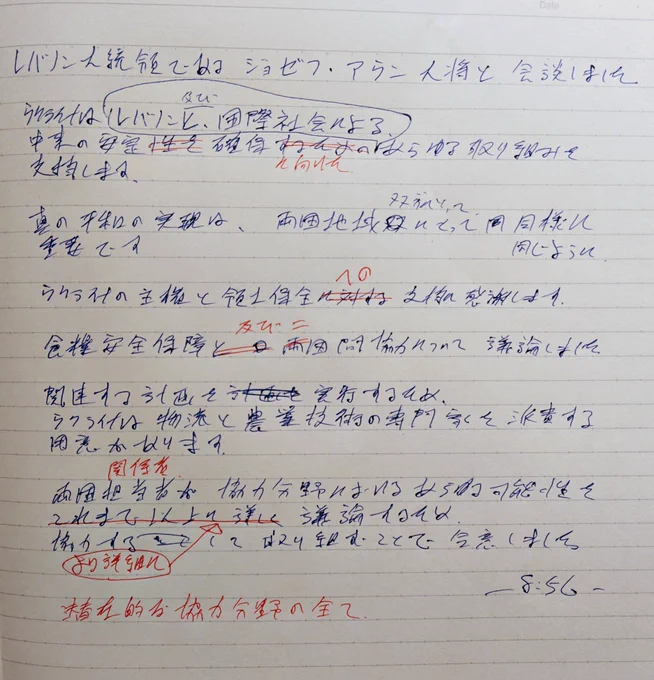 Date
レバノン大統領である ジョゼフ・アウン大将と 会談しました
及び
ウクライナは レバノンと、国際社会による
中東の安定性を確保するためのあらゆる取り組みを
に向けた
支持します。
双方にとって
真の平和の実現は、両国地域にとって 同様に
重要です 同じように
への
ウクライナの主権と領土保全に対する 支持に感謝します。
及び 二
食糧安全保障と 両国間協力について 議論しました
関連する計画を 計画を 実行するため、
ウクライナは物流と農業技術の専門家を派遣する
用意があります。
関係者
両国担当者が 協力分野における あらゆる可能性を
これまで以上に詳しく 議論するため、
協力する として 取り組むことで合意しました
より詳細に
—8:56—
潜在的な協力分野の全て